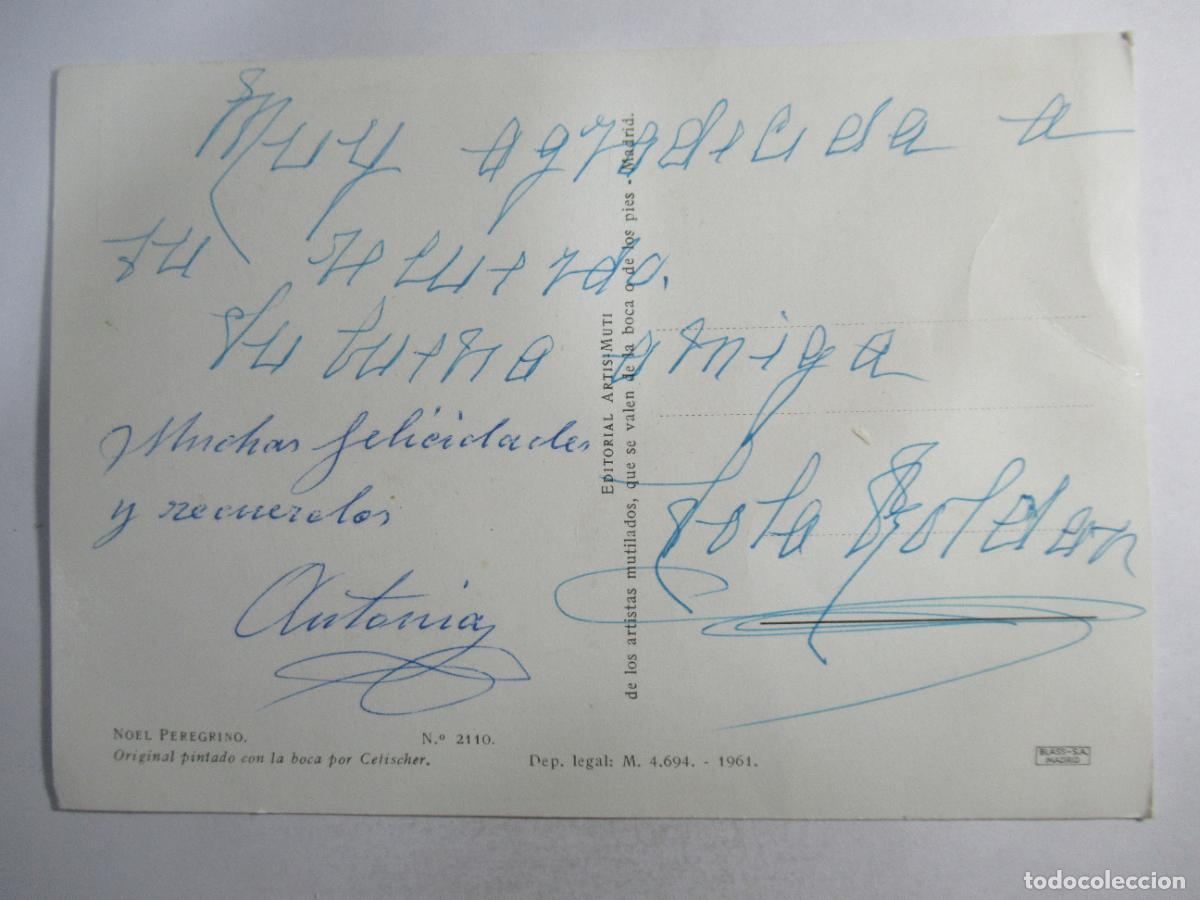 Muy agradecida a
tu recuerdo.
Tu buena amiga
Lola Roldan
Muchas felicidades
y recuerdos
Antonia
EDITORIAL ARTIS-MUTI
de los artistas mutilados, que se valen de la boca o de los pies - Madrid.
NOEL PEREGRINO. N.º 2110.
Original pintado con la boca por Cefischer.
Dep. legal: M. 4.694. - 1961.
BLASS-S.A.
MADRID
todocoleccion